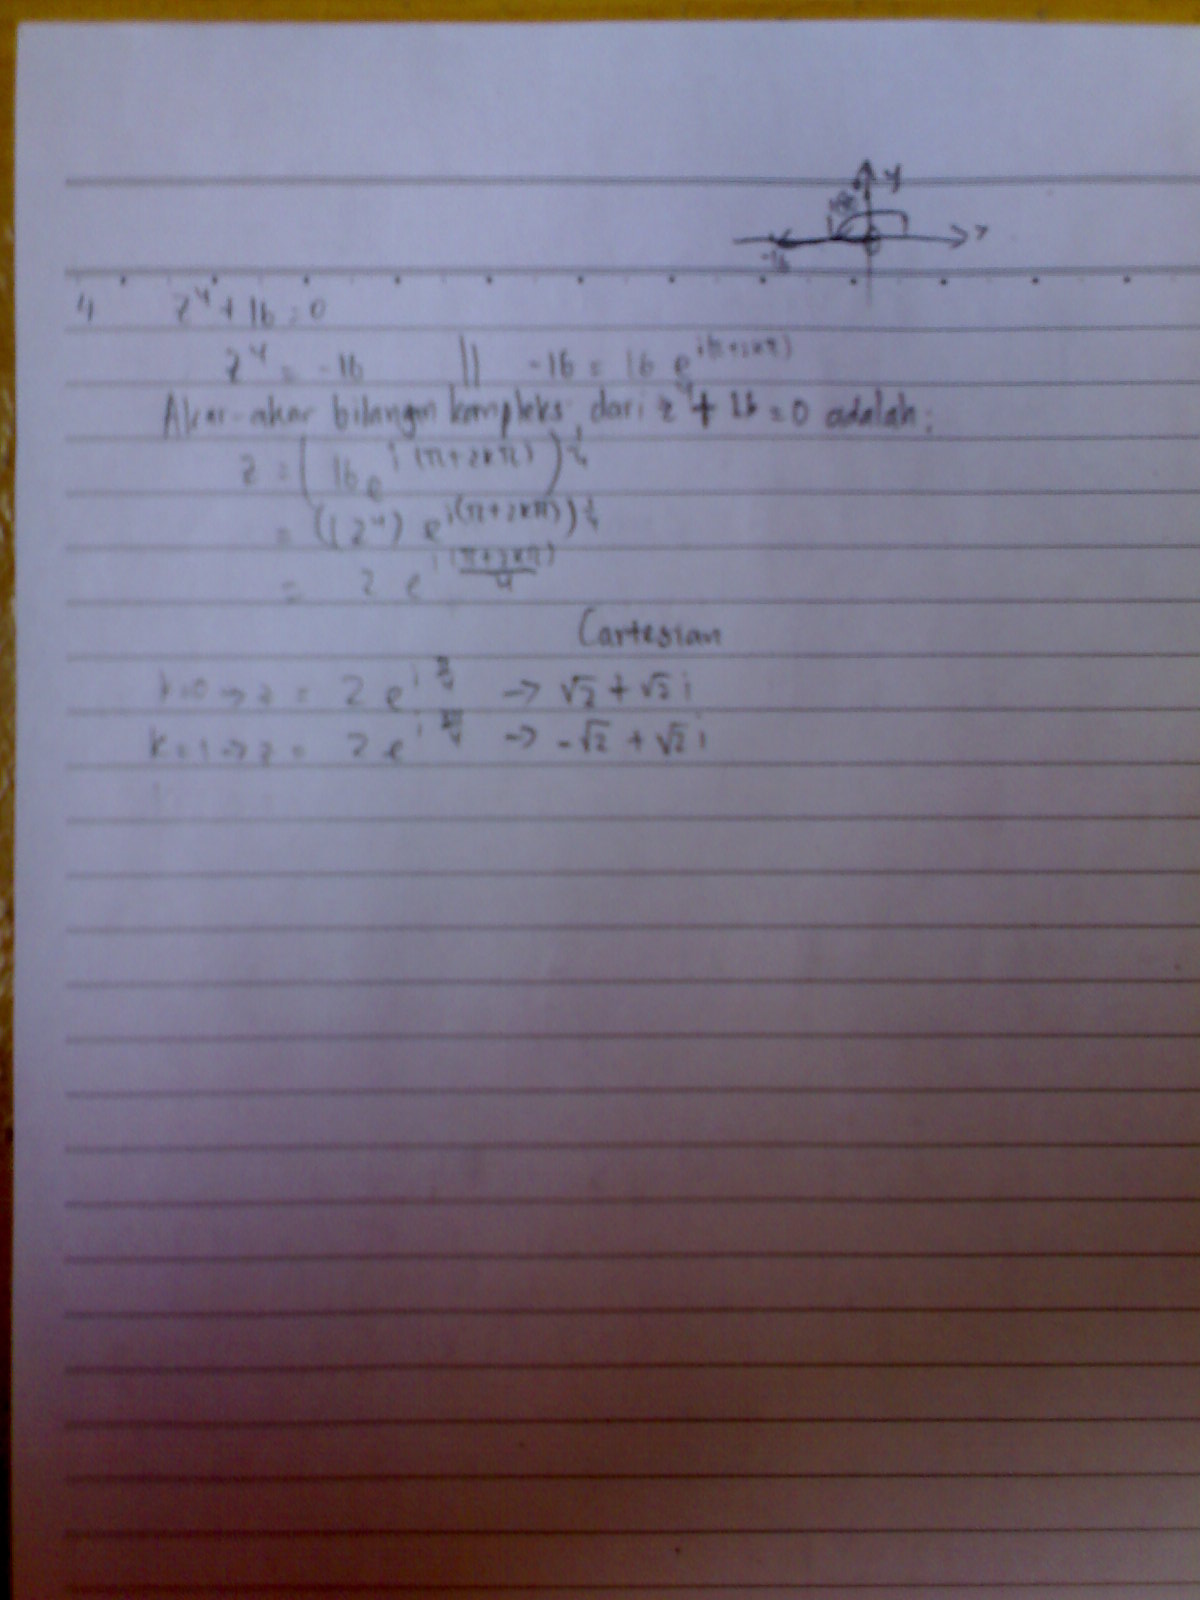 y
x
180°
-16
4 z⁴ + 16 = 0
z⁴ = -16 || -16 = 16 e^{i(π+2kπ)}
Akar-akar bilangan kompleks dari z⁴ + 16 = 0 adalah:
z = (16 e^{i(π+2kπ)})^{1/4}
= ((2⁴) e^{i(π+2kπ)})^{1/4}
= 2 e^{i(π+2kπ)/4}
Cartesian
k=0 → z = 2 e^{iπ/4} → √2 + √2 i
k=1 → z = 2 e^{i3π/4} → -√2 + √2 i